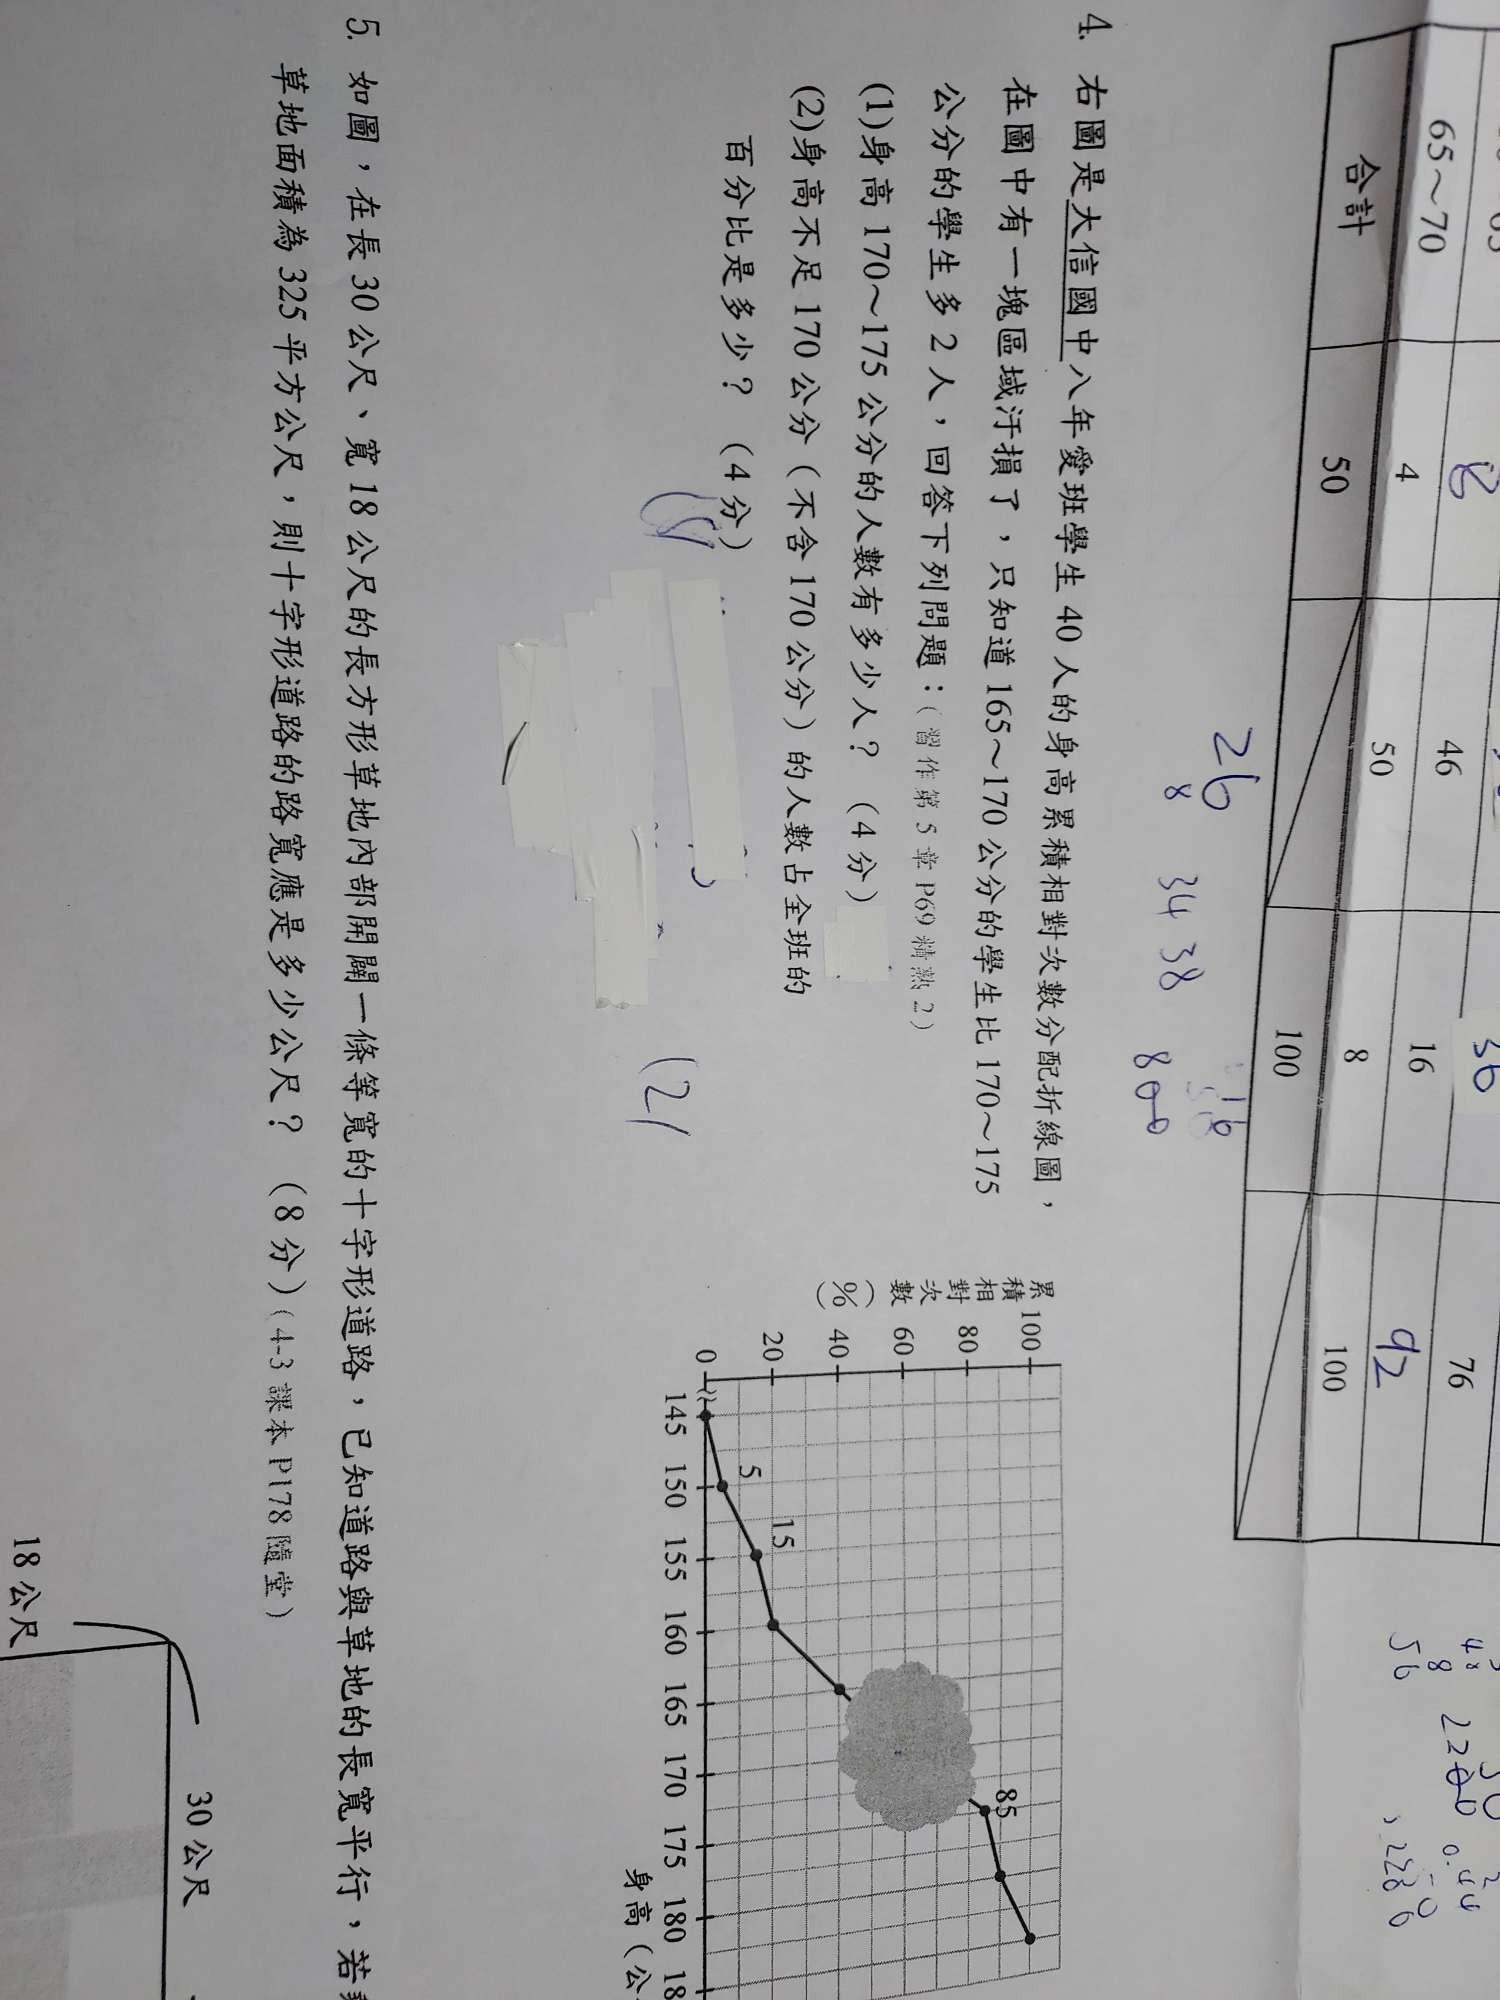 65～70 8 46 16 76
4 50 8 92
合計 50 100 100
26
8 34 38
16
800
4. 右圖是大信國中八年愛班學生 40 人的身高累積相對次數分配折線圖，
在圖中有一塊區域汙損了，只知道 165～170 公分的學生比 170～175
公分的學生多 2 人，回答下列問題：(習作第 5 章 P69 精熟 2)
(1)身高 170～175 公分的人數有多少人？（4 分）
(2)身高不足 170 公分（不含 170 公分）的人數占全班的
百分比是多少？（4 分）
(2)
累積相對次數(%)
100
80
60
40
20
0
5
15
85
145 150 155 160 165 170 175 180 18
身高（公
5. 如圖，在長 30 公尺、寬 18 公尺的長方形草地內部開闢一條等寬的十字形道路，已知道路與草地的長寬平行，若
草地面積為 325 平方公尺，則十字形道路的路寬應是多少公尺？（8 分）(4-3 課本 P178 隨堂)
30 公尺
18 公尺